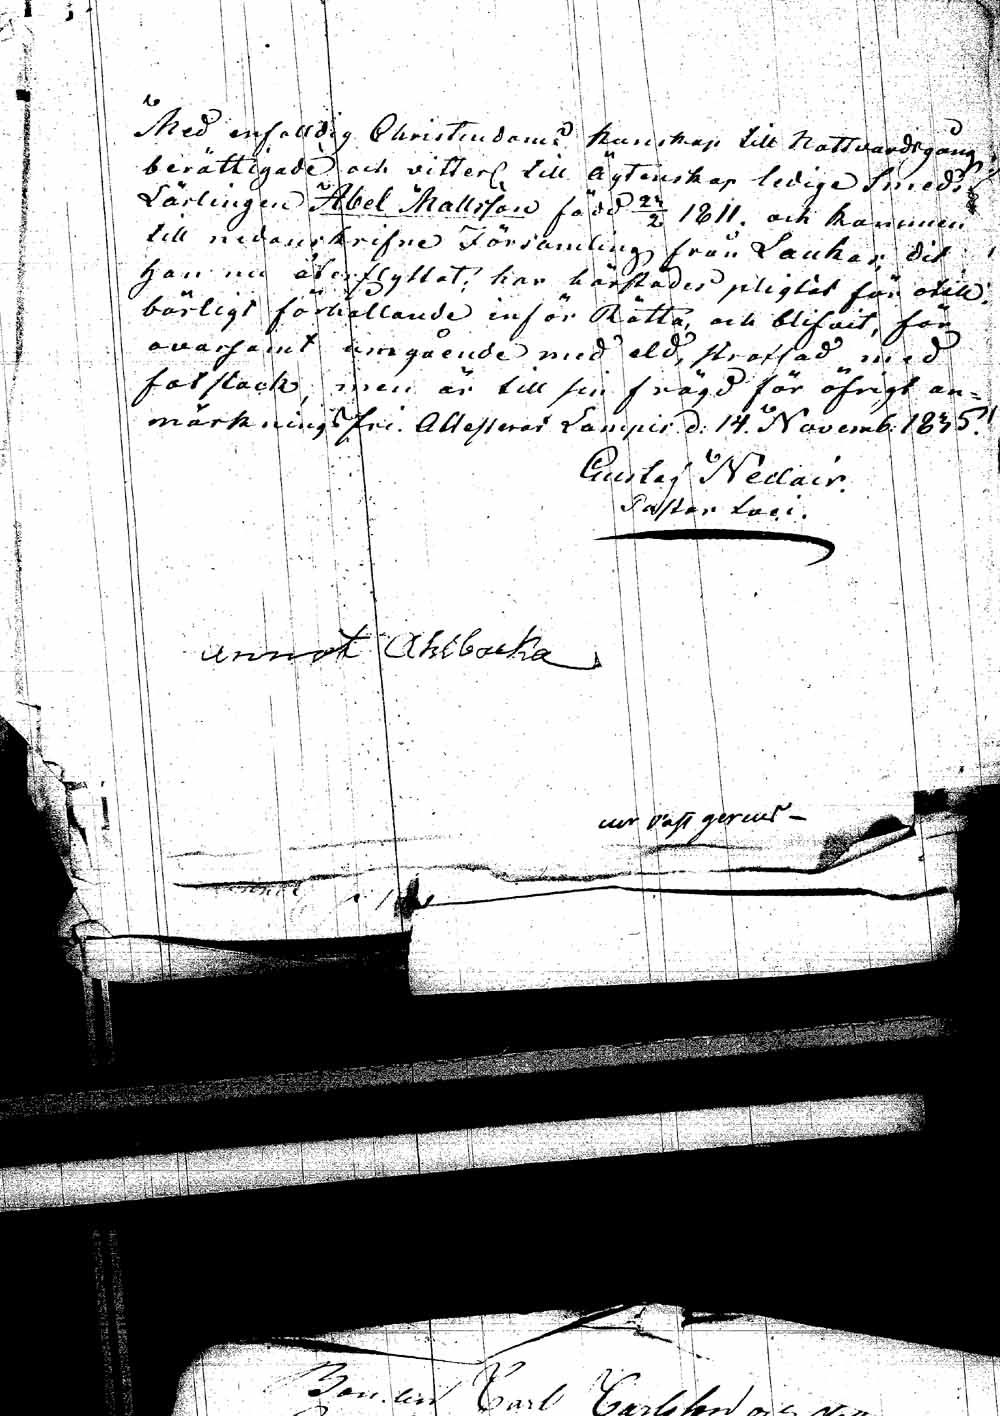 Med enfalldig Christendoms kunskap till Nattvardsgång
berättigade och vitterl till Ägtenskap ledige Smeds
Lärlingen Abel Mattsson född 24/2 1811. och kommen
till nedanskrifne Församling från Laukas, dit
han nu återflyttat, har härstädes pligtat för otill-
börligt förhållande inför Rätta, och blifvit, för
ovarsamt umgående med eld, straffad med
fotstock, men är till sin frägd för öfrigt an=
märkningsfri. Attesteras Lampis d. 14. Novemb. 1835.
Gustaf Neclair.
Pastor Loci.
annot Ahlbacka
Bonden Carl Carlsson och